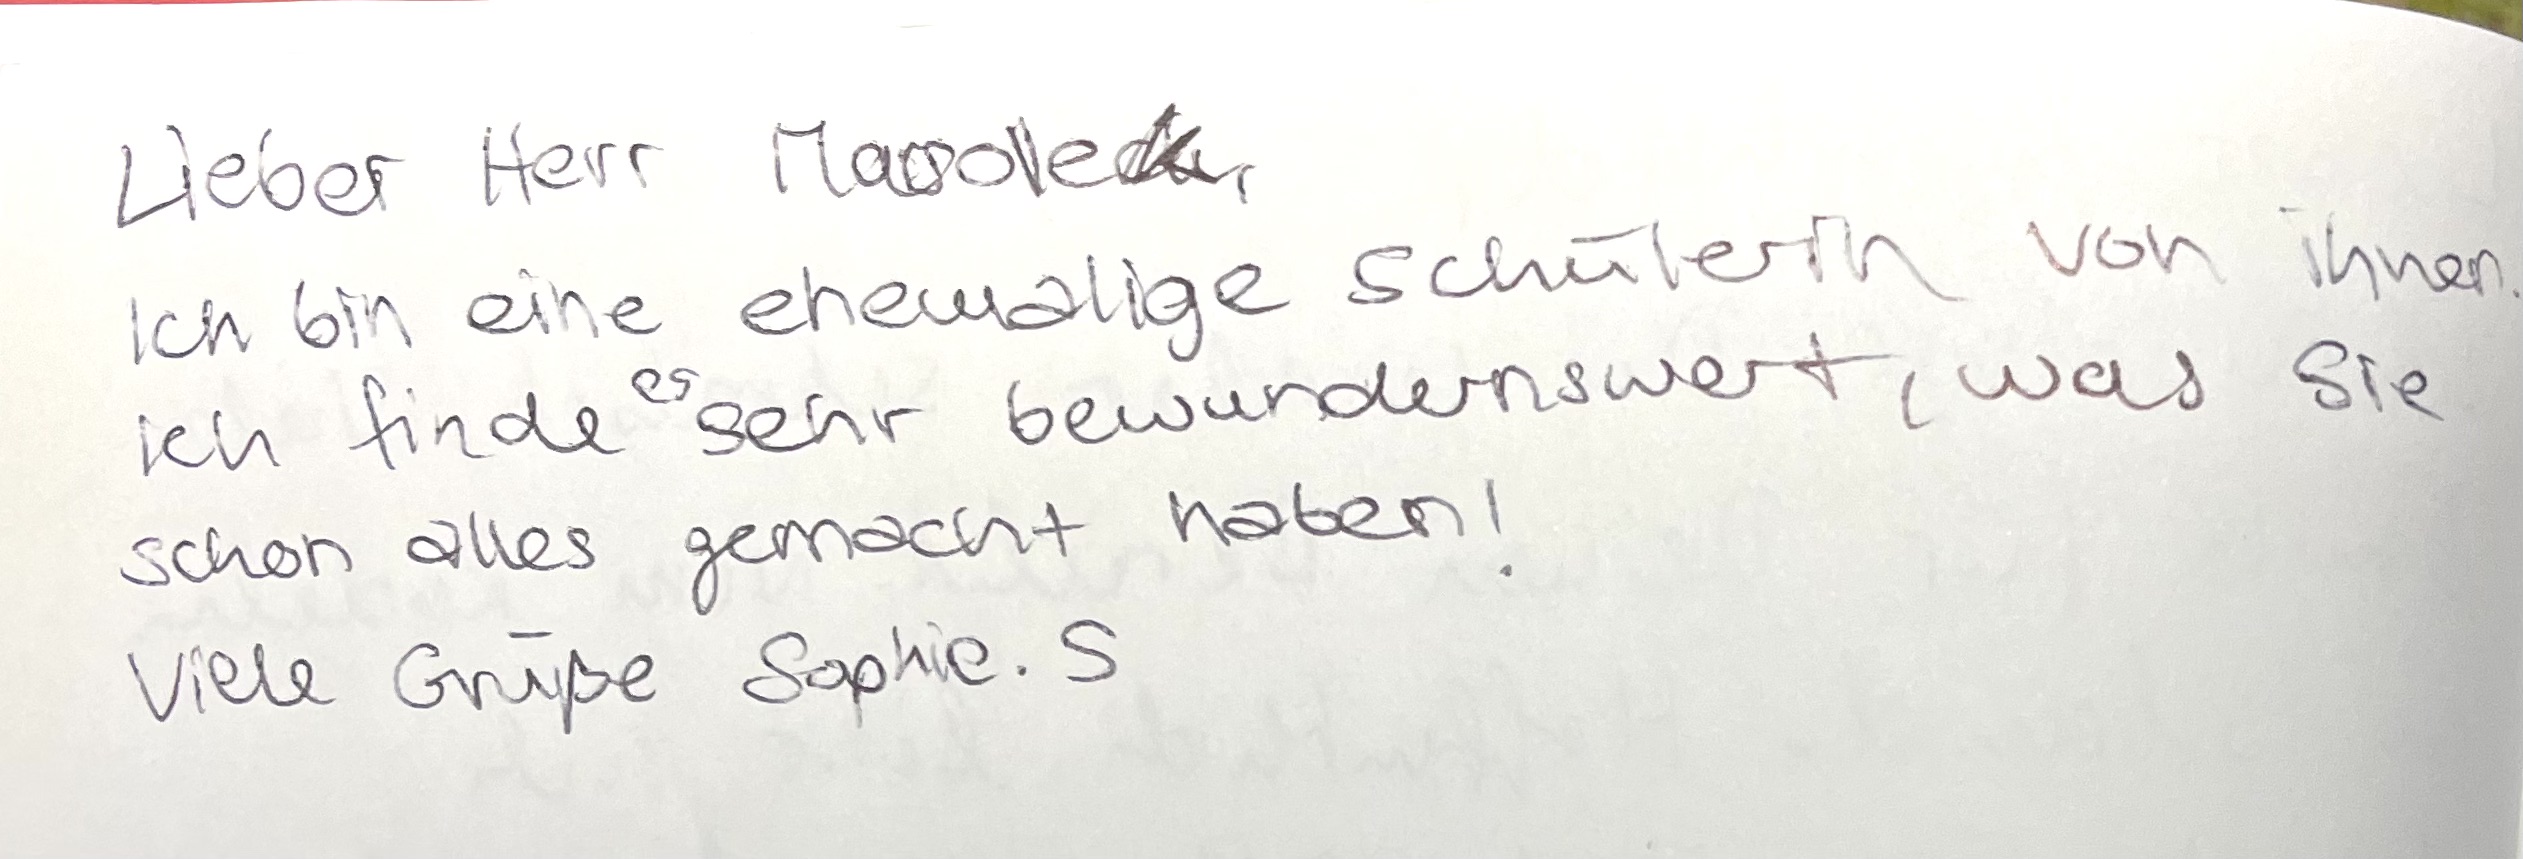 Lieber Herr
Ich bin eine ehemalige Schülerin von ihnen.
Ich finde es sehr bewundernswert, was Sie
schon alles gemacht haben!
Viele Grüße Sophie. S